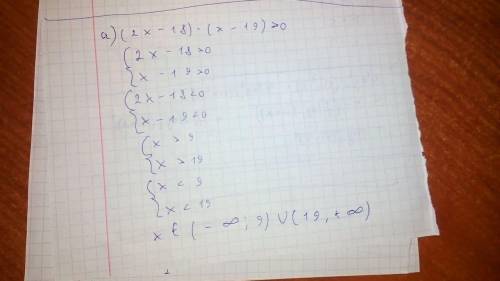 а) (2x - 18) · (x - 19) > 0
{ 2x - 18 > 0
{ x - 19 > 0
{ 2x - 18 < 0
{ x - 19 < 0
{ x > 9
{ x > 19
{ x < 9
{ x < 19
x ∈ (- ∞; 9) ∪ (19, + ∞)